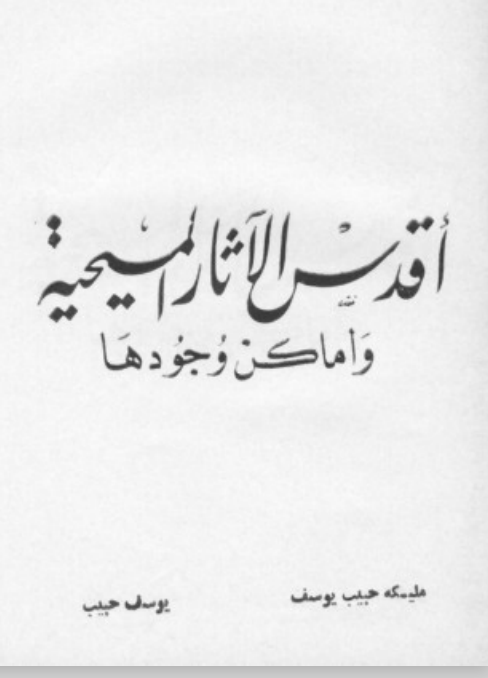 أقدس الآثار المسيحية
وَأماكن وُجُودهَا
مليكه حبيب يوسف يوسف حبيب